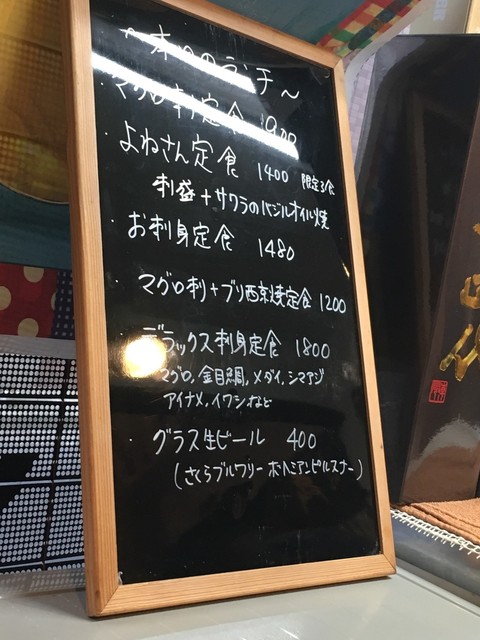 〜本日のランチ〜
・マグロ刺定食 900
・よねさん定食 1400 限定3食
刺盛+サワラのバジルオイル焼
・お刺身定食 1480
・マグロ刺+ブリ西京焼定食 1200
・デラックス刺身定食 1800
マグロ,金目鯛,メダイ,シマアジ
アイナメ,イワシなど
・グラス生ビール 400
(さくらブルワリー ボヘミアンピルスナー)